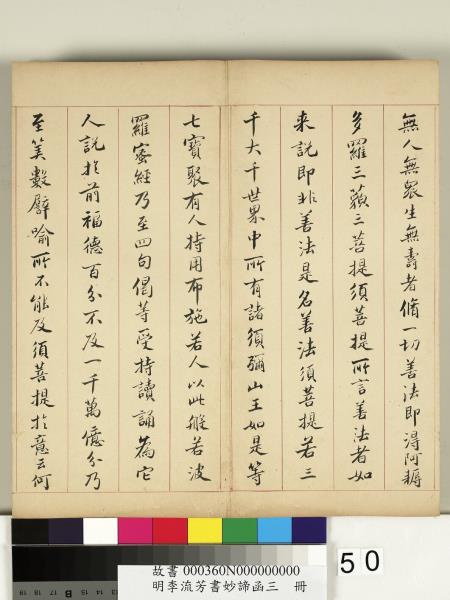 無人無眾生無壽者脩一切善法即得阿耨
多羅三藐三菩提須菩提所言善法者如
来說即非善法是名善法須菩提若三
千大千世界中所有諸須彌山王如是等
七寶聚有人持用布施若人以此般若波
羅蜜經乃至四句偈等受持讀誦為它
人說於前福德百分不及一千萬億分乃
至算數譬喻所不能及須菩提於意云何
50
故書 000360N000000000
明李流芳書妙諦函三 冊
19 18 17 16 15 B